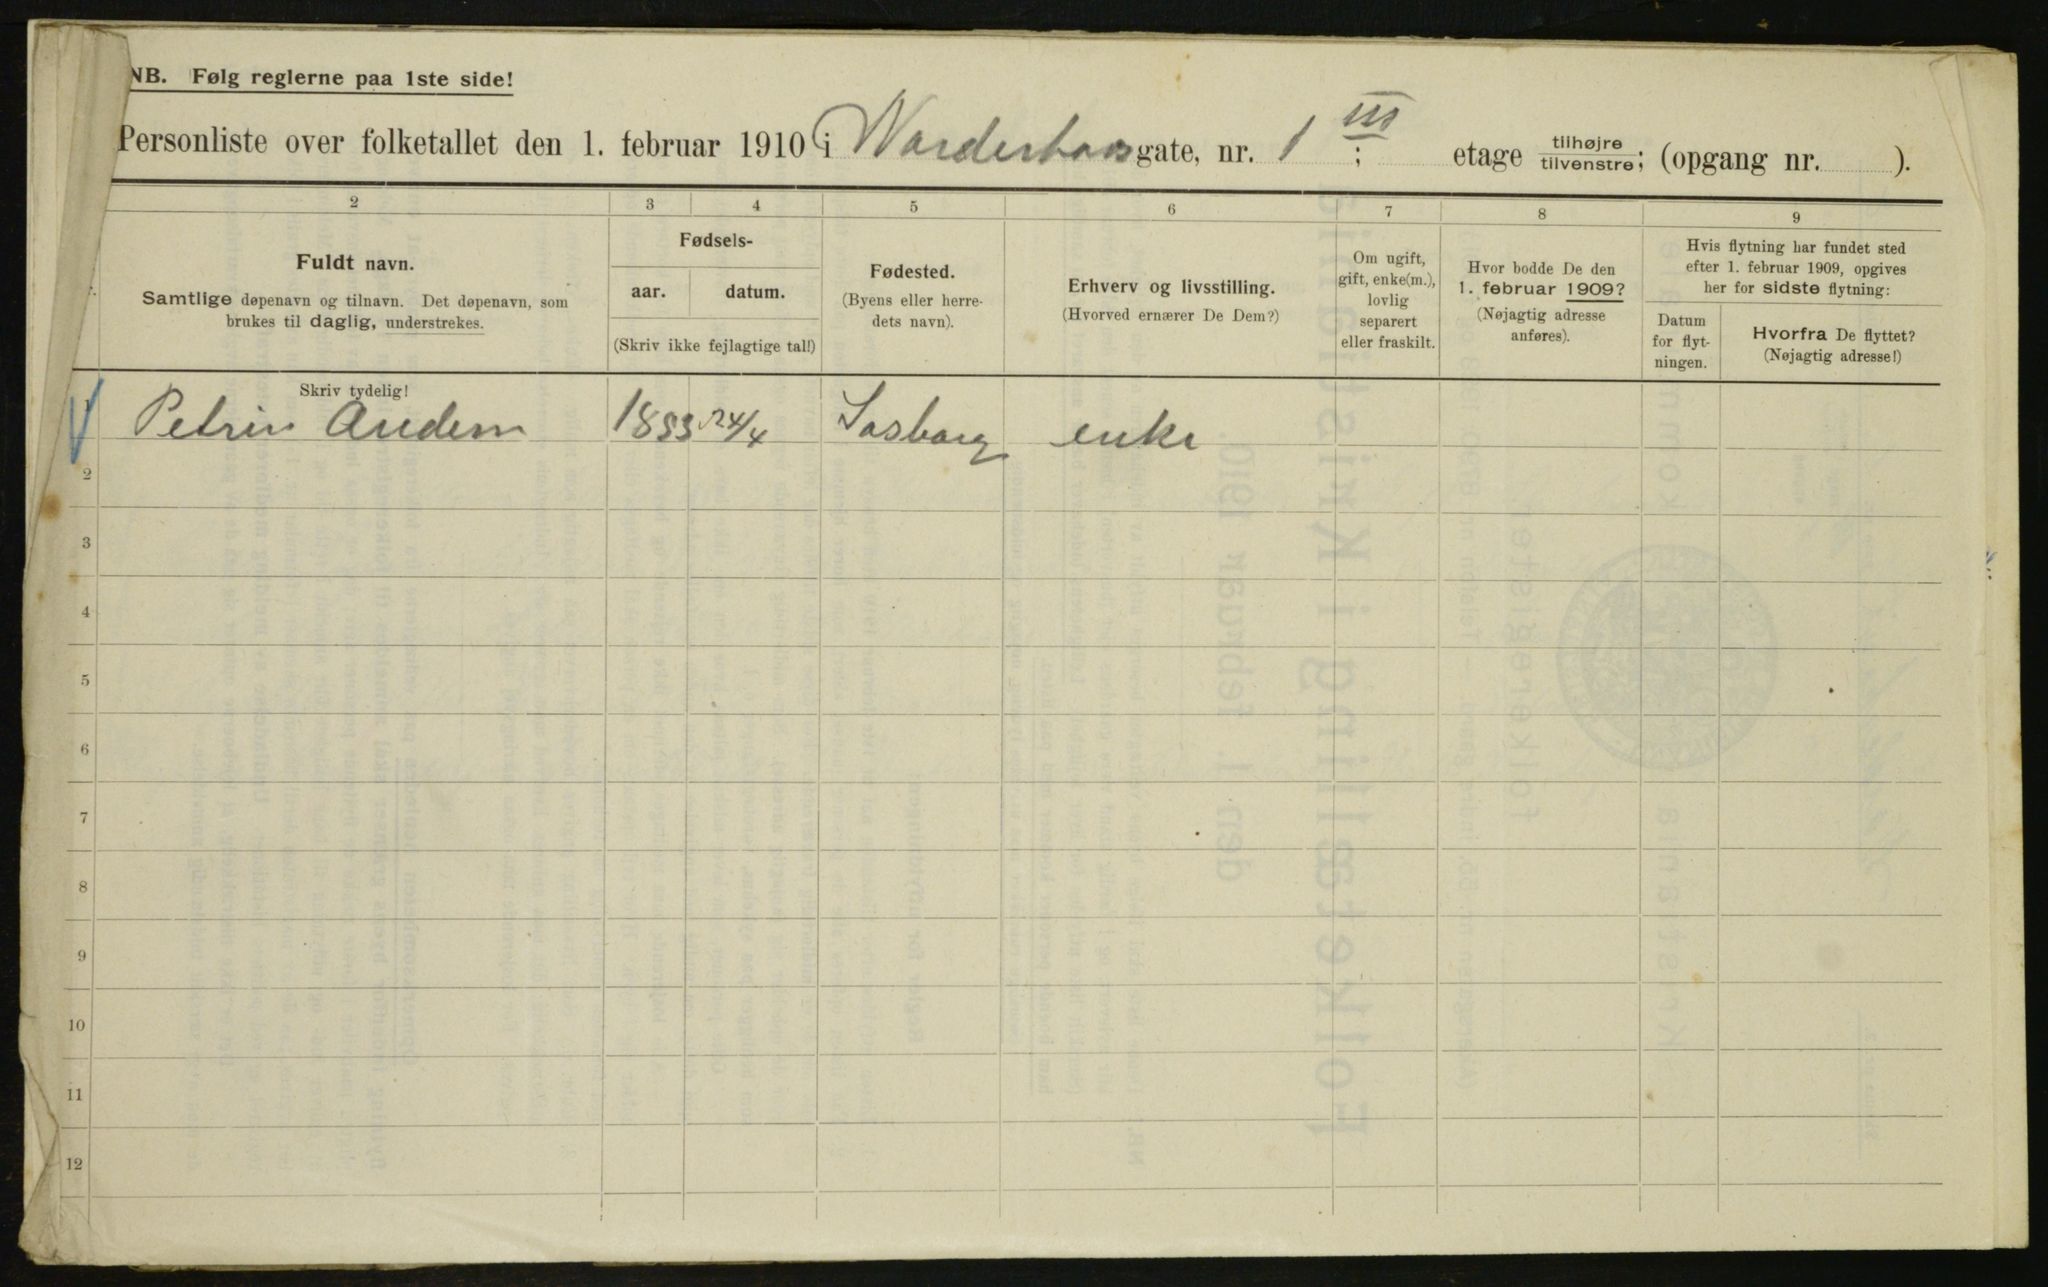 NB. Følg reglerne paa 1ste side!
Personliste over folketallet den 1. februar 1910 i Warderhaos gate, nr. 1 ; III etage tilhøjre/tilvenstre; (opgang nr. ).
2 3 4 5 6 7 8 9
Fuldt navn.
Samtlige døpenavn og tilnavn. Det døpenavn, som
brukes til daglig, understrekes.
Fødsels-
aar. datum.
(Skriv ikke fejlagtige tal!)
Fødested.
(Byens eller herre-
dets navn).
Erhverv og livsstilling.
(Hvorved ernærer De Dem?)
Om ugift,
gift, enke(m.),
lovlig
separert
eller fraskilt.
Hvor bodde De den
1. februar 1909?
(Nøjagtig adresse
anføres).
Hvis flytning har fundet sted
efter 1. februar 1909, opgives
her for sidste flytning:
Datum
for flyt-
ningen.
Hvorfra De flyttet?
(Nøjagtig adresse!)
Skriv tydelig!
1 Petrin 24/4 enke
2
3
4
5
6
7
8
9
10
11
12